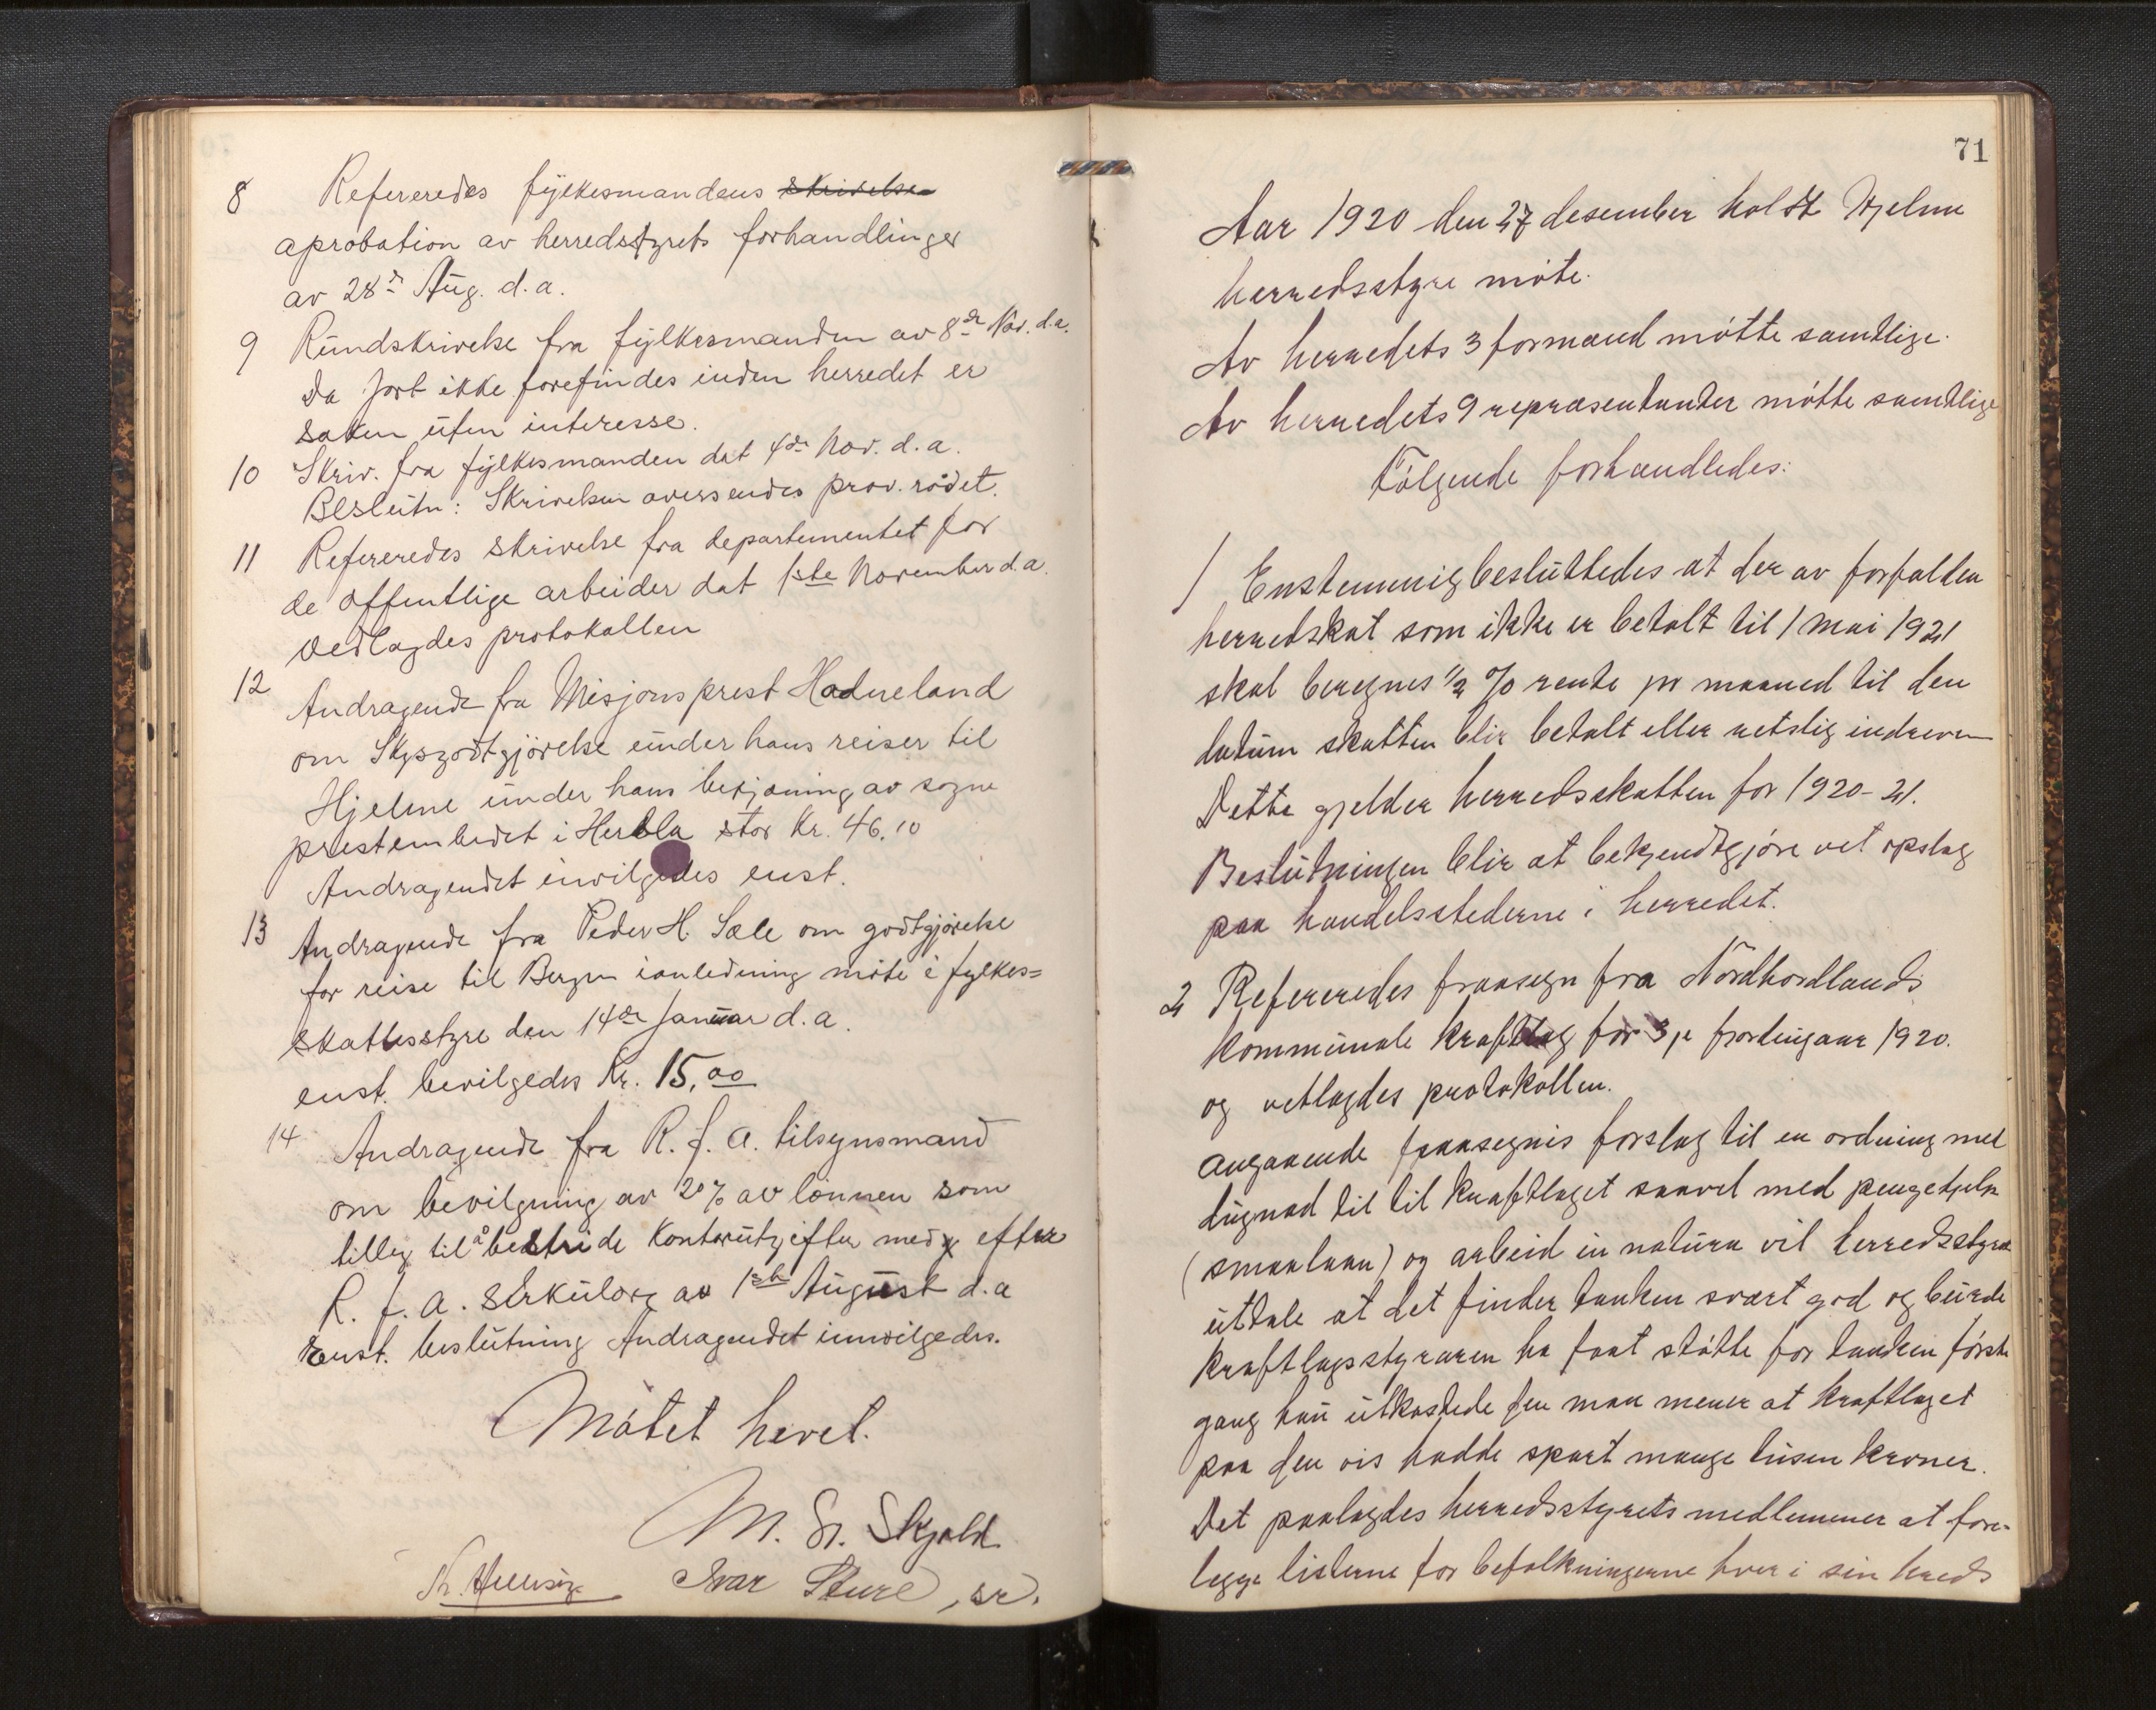 8 Refereredes fylkesmandens skrivelse
aprobation av herredsstyrets forhandlinger
av 28de Aug. d.a.
9 Rundskrivelse fra fylkesmanden av 8de Nov. d.a.
Da jort ikke forefindes inden herredet er
saken uten interesse.
10 Skriv. fra fylkesmanden dat 4de Nov. d.a.
Beslutn: Skrivelsen oversendes prov. rådet.
11 Refereredes skrivelse fra departementet for
de offentlige arbeider dat 1ste November d.a.
vedlagdes protokollen
12 Andragende fra Misjonsprest Hadneland
om Skyszgodtgjörelse under hans reiser til
Hjelme under hans betjæning av sogne
prestembedet i Herdla stor Kr. 46.10
Andragendet invilgedes enst.
13 Andragende fra Peder H. Sæle om godtgjörelse
for reise til Bergen ianledning möte i fylkes=
skattesstyre den 14de Januar d.a.
enst. bevilgedes Kr. 15,00
14 Andragende fra R. f. a. tilsynsmand
om bevilgning av 20% av lönnen som
tilleg til å bestride Kontorutgifter med efter
R. f. a. sirkulære av 1ste August d.a
Enst. beslutning Andragendet innvilgedes.
Mötet hevet.
M. Sr. Skjold
Ivar Sture, sr.
71
Aar 1920 den 27 desember holdt Hjelme
herredsstyre möte.
Av herredets 3 formænd mötte samtlige.
Av herredets 9 repræsentanter mötte samtlige
Fölgende forhandledes:
1 Enstemmig besluttedes at der av forfalden
herredskat som ikke er betalt til 1 mai 1921
skal beregnes 1/2 % rente pr maaned til den
datum skatten blir betalt eller retslig indreven
Dette gjelder herredsskatten for 1920-21.
Beslutningen blir at bekjendtgjöre vet opslag
paa handelsstederne i herredet.
2 Refereredes fraasegn fra Nordhordlands
kommunale kraftlag for 3je fjordingaar 1920.
og vetlagdes protokollen.
Angaaende fraasegnis forslag til en ordning med
dugnad til til kraftlaget saavel med pengehjelp
(smaalaan) og arbeid in natura vil herredsstyre
uttale at det finder tanken svært god og burde
kraftlagsstyraren ha faat stötte for tanken förste
gang han utkastede den man mener at kraftlaget
paa den vis hadde spart mange tusen kroner.
Det paalagdes herredsstyrets medlemmer at fore-
legge listerne for befolkningerne hver i sin kreds